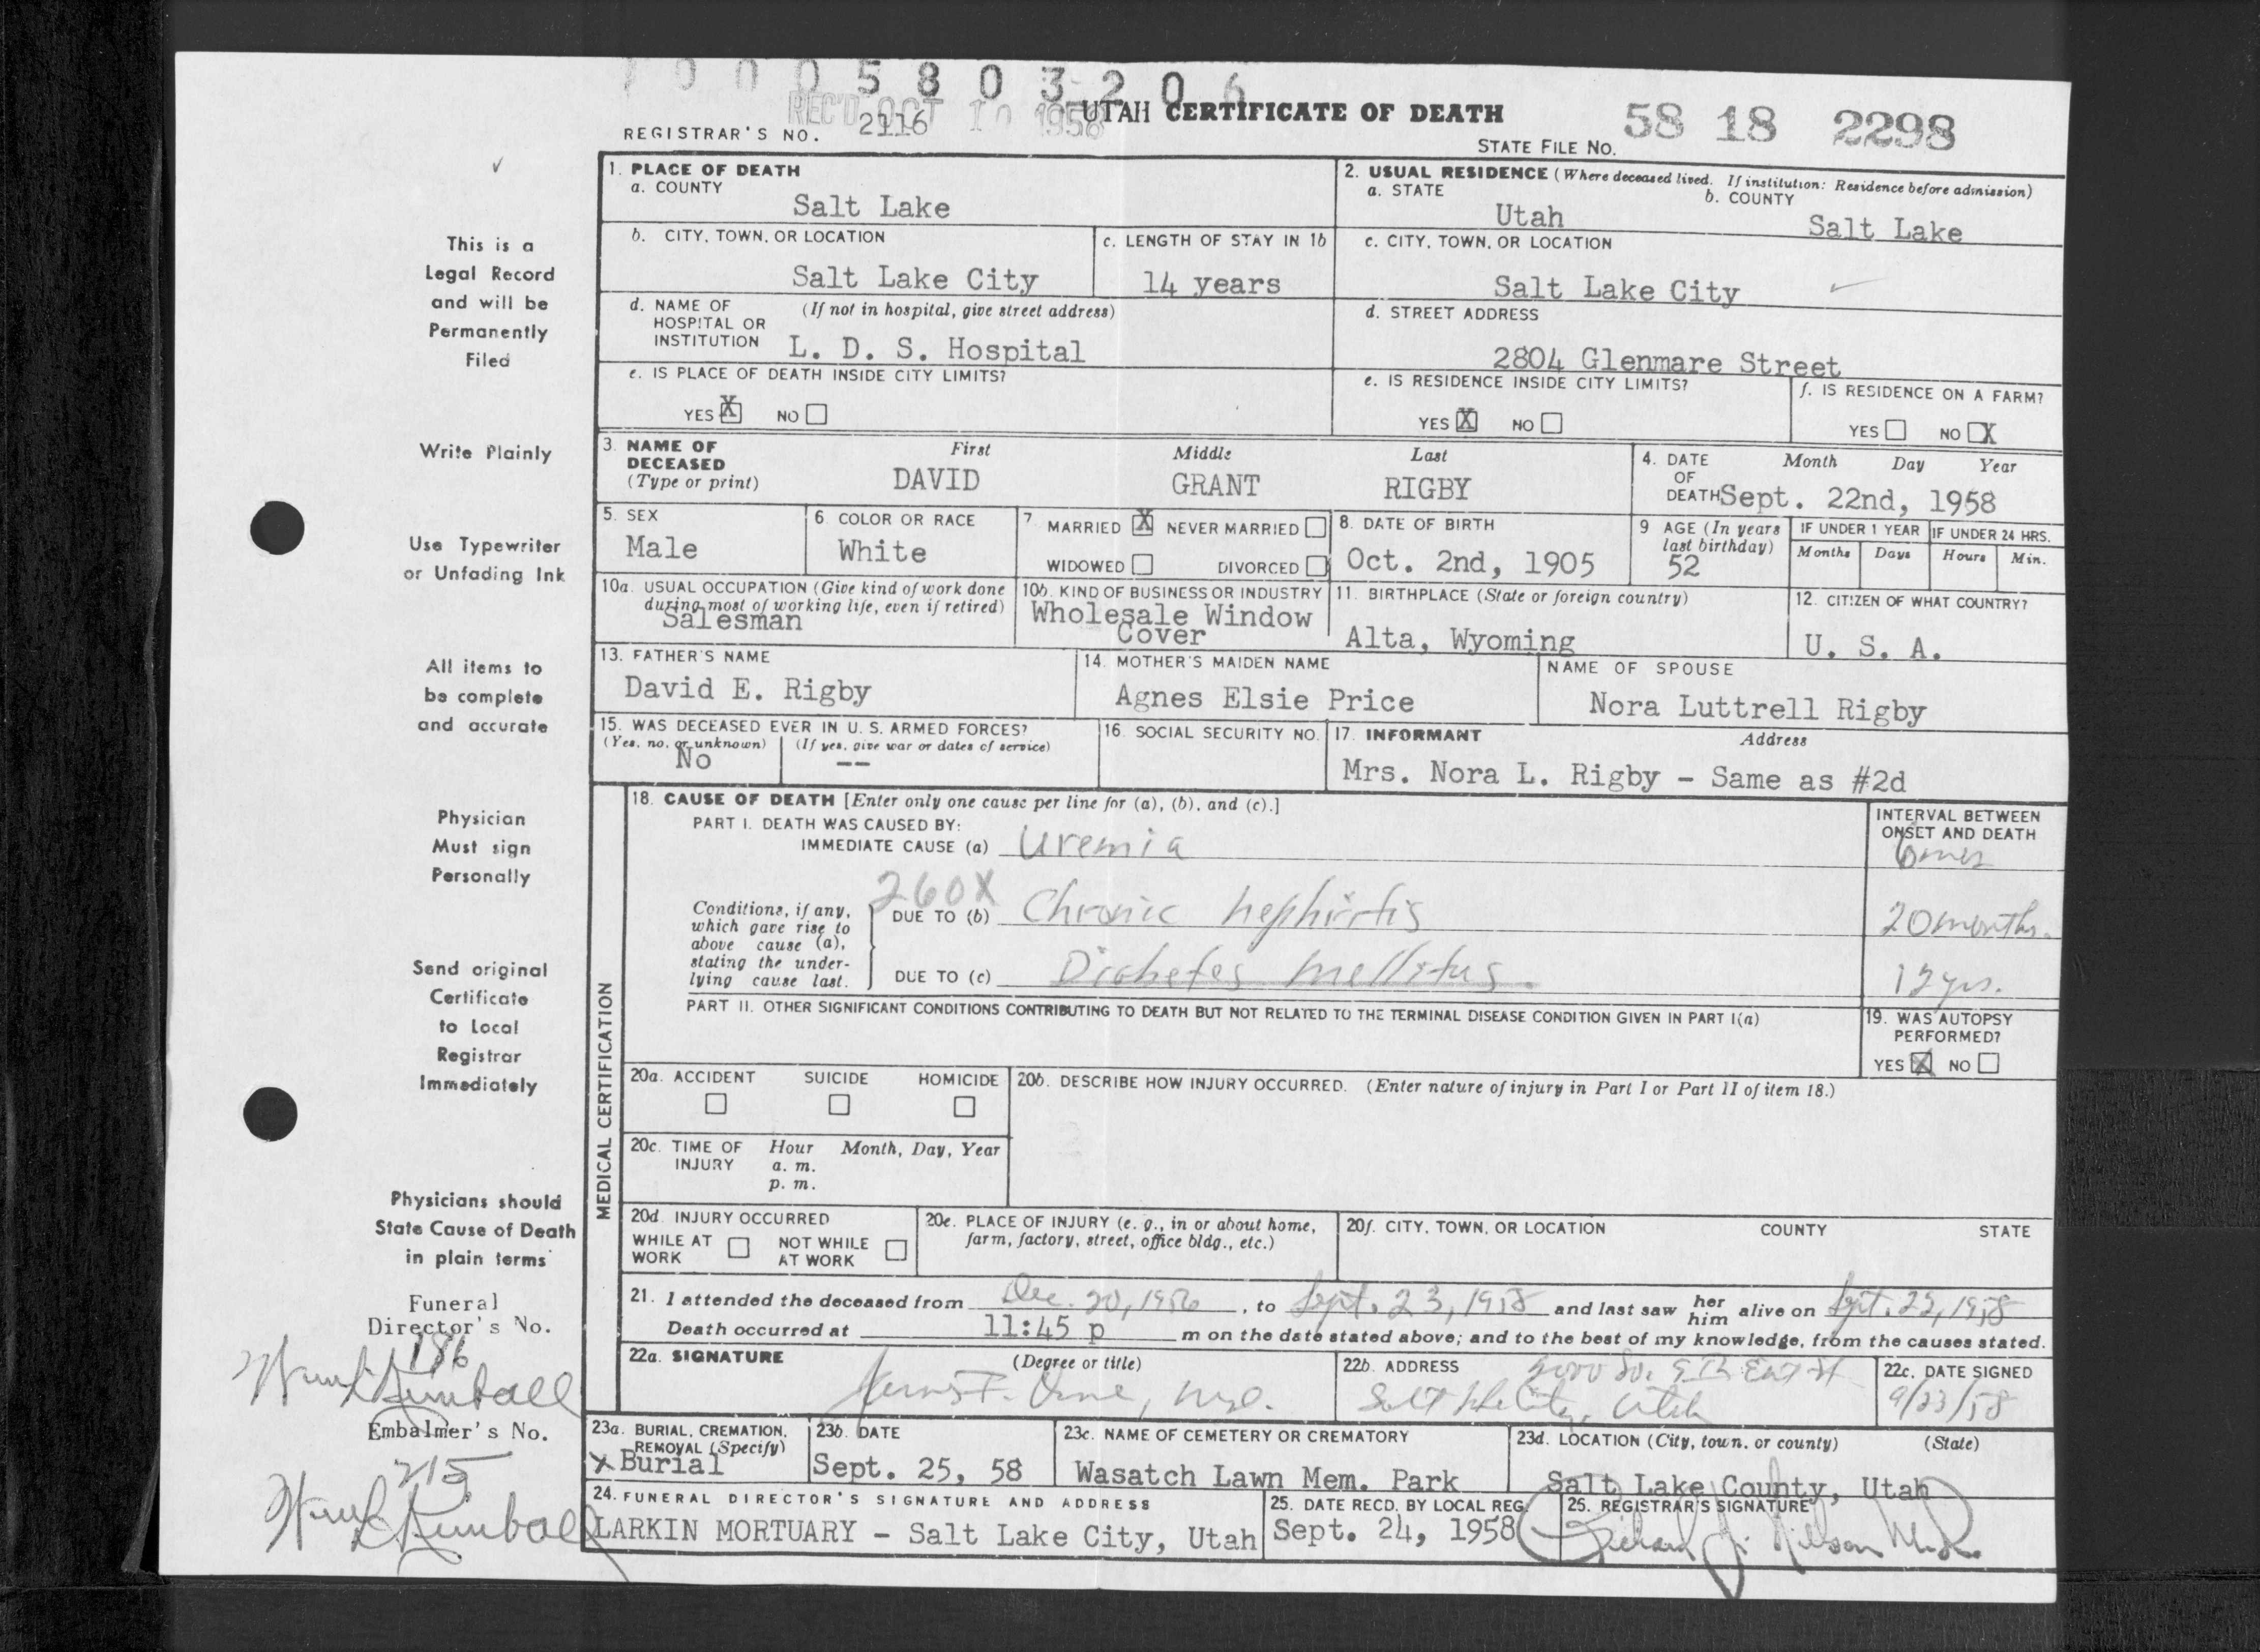 1 9 0 0 5 8 0 3 2 0 6
REC'D OCT 10 1958
UTAH CERTIFICATE OF DEATH
REGISTRAR'S NO. 2116
STATE FILE NO. 58 18 2298
This is a
Legal Record
and will be
Permanently
Filed
Write Plainly
Use Typewriter
or Unfading Ink
All items to
be complete
and accurate
Physician
Must sign
Personally
Send original
Certificate
to Local
Registrar
Immediately
Physicians should
State Cause of Death
in plain terms
Funeral
Director's No.
186
Kimball
Embalmer's No.
215
Kimball
1. PLACE OF DEATH
a. COUNTY
Salt Lake
b. CITY, TOWN, OR LOCATION
Salt Lake City
c. LENGTH OF STAY IN 1b
14 years
d. NAME OF (If not in hospital, give street address)
HOSPITAL OR
INSTITUTION L. D. S. Hospital
e. IS PLACE OF DEATH INSIDE CITY LIMITS?
YES X NO
2. USUAL RESIDENCE (Where deceased lived. If institution: Residence before admission)
a. STATE
Utah
b. COUNTY
Salt Lake
c. CITY, TOWN, OR LOCATION
Salt Lake City
d. STREET ADDRESS
2804 Glenmare Street
e. IS RESIDENCE INSIDE CITY LIMITS?
YES X NO
f. IS RESIDENCE ON A FARM?
YES NO X
3. NAME OF DECEASED (Type or print)
First Middle Last
DAVID GRANT RIGBY
4. DATE OF DEATH Month Day Year
Sept. 22nd, 1958
5. SEX
Male
6. COLOR OR RACE
White
7. MARRIED X NEVER MARRIED
WIDOWED DIVORCED
8. DATE OF BIRTH
Oct. 2nd, 1905
9 AGE (In years last birthday)
52
IF UNDER 1 YEAR
Months Days
IF UNDER 24 HRS.
Hours Min.
10a. USUAL OCCUPATION (Give kind of work done
during most of working life, even if retired)
Salesman
10b. KIND OF BUSINESS OR INDUSTRY
Wholesale Window
Cover
11. BIRTHPLACE (State or foreign country)
Alta, Wyoming
12. CITIZEN OF WHAT COUNTRY?
U. S. A.
13. FATHER'S NAME
David E. Rigby
14. MOTHER'S MAIDEN NAME
Agnes Elsie Price
NAME OF SPOUSE
Nora Luttrell Rigby
15. WAS DECEASED EVER IN U. S. ARMED FORCES?
(Yes, no, or unknown) (If yes, give war or dates of service)
No --
16. SOCIAL SECURITY NO.
17. INFORMANT Address
Mrs. Nora L. Rigby - Same as #2d
MEDICAL CERTIFICATION
18. CAUSE OF DEATH [Enter only one cause per line for (a), (b), and (c).]
PART I. DEATH WAS CAUSED BY:
IMMEDIATE CAUSE (a) Uremia
INTERVAL BETWEEN
ONSET AND DEATH
260X
Conditions, if any,
which gave rise to
above cause (a),
stating the under-
lying cause last.
DUE TO (b) Chronic nephiritis
20 months.
DUE TO (c) Diabetes mellitus.
12 yrs.
PART II. OTHER SIGNIFICANT CONDITIONS CONTRIBUTING TO DEATH BUT NOT RELATED TO THE TERMINAL DISEASE CONDITION GIVEN IN PART I(a)
19. WAS AUTOPSY
PERFORMED?
YES X NO
20a. ACCIDENT SUICIDE HOMICIDE
20b. DESCRIBE HOW INJURY OCCURRED. (Enter nature of injury in Part I or Part II of item 18.)
20c. TIME OF INJURY Hour Month, Day, Year
a. m.
p. m.
20d. INJURY OCCURRED
WHILE AT WORK NOT WHILE AT WORK
20e. PLACE OF INJURY (e. g., in or about home,
farm, factory, street, office bldg., etc.)
20f. CITY, TOWN, OR LOCATION COUNTY STATE
21. I attended the deceased from Dec. 20, 1956, to Sept. 23, 1958 and last saw her him alive on Sept. 22, 1958
Death occurred at 11:45 p m on the date stated above; and to the best of my knowledge, from the causes stated.
22a. SIGNATURE (Degree or title)
22b. ADDRESS
Salt Lake City, Utah
22c. DATE SIGNED
9/23/58
23a. BURIAL, CREMATION,
REMOVAL (Specify)
X Burial
23b. DATE
Sept. 25, 58
23c. NAME OF CEMETERY OR CREMATORY
Wasatch Lawn Mem. Park
23d. LOCATION (City, town, or county) (State)
Salt Lake County, Utah
24. FUNERAL DIRECTOR'S SIGNATURE AND ADDRESS
LARKIN MORTUARY - Salt Lake City, Utah
25. DATE RECD. BY LOCAL REG.
Sept. 24, 1958
25. REGISTRAR'S SIGNATURE